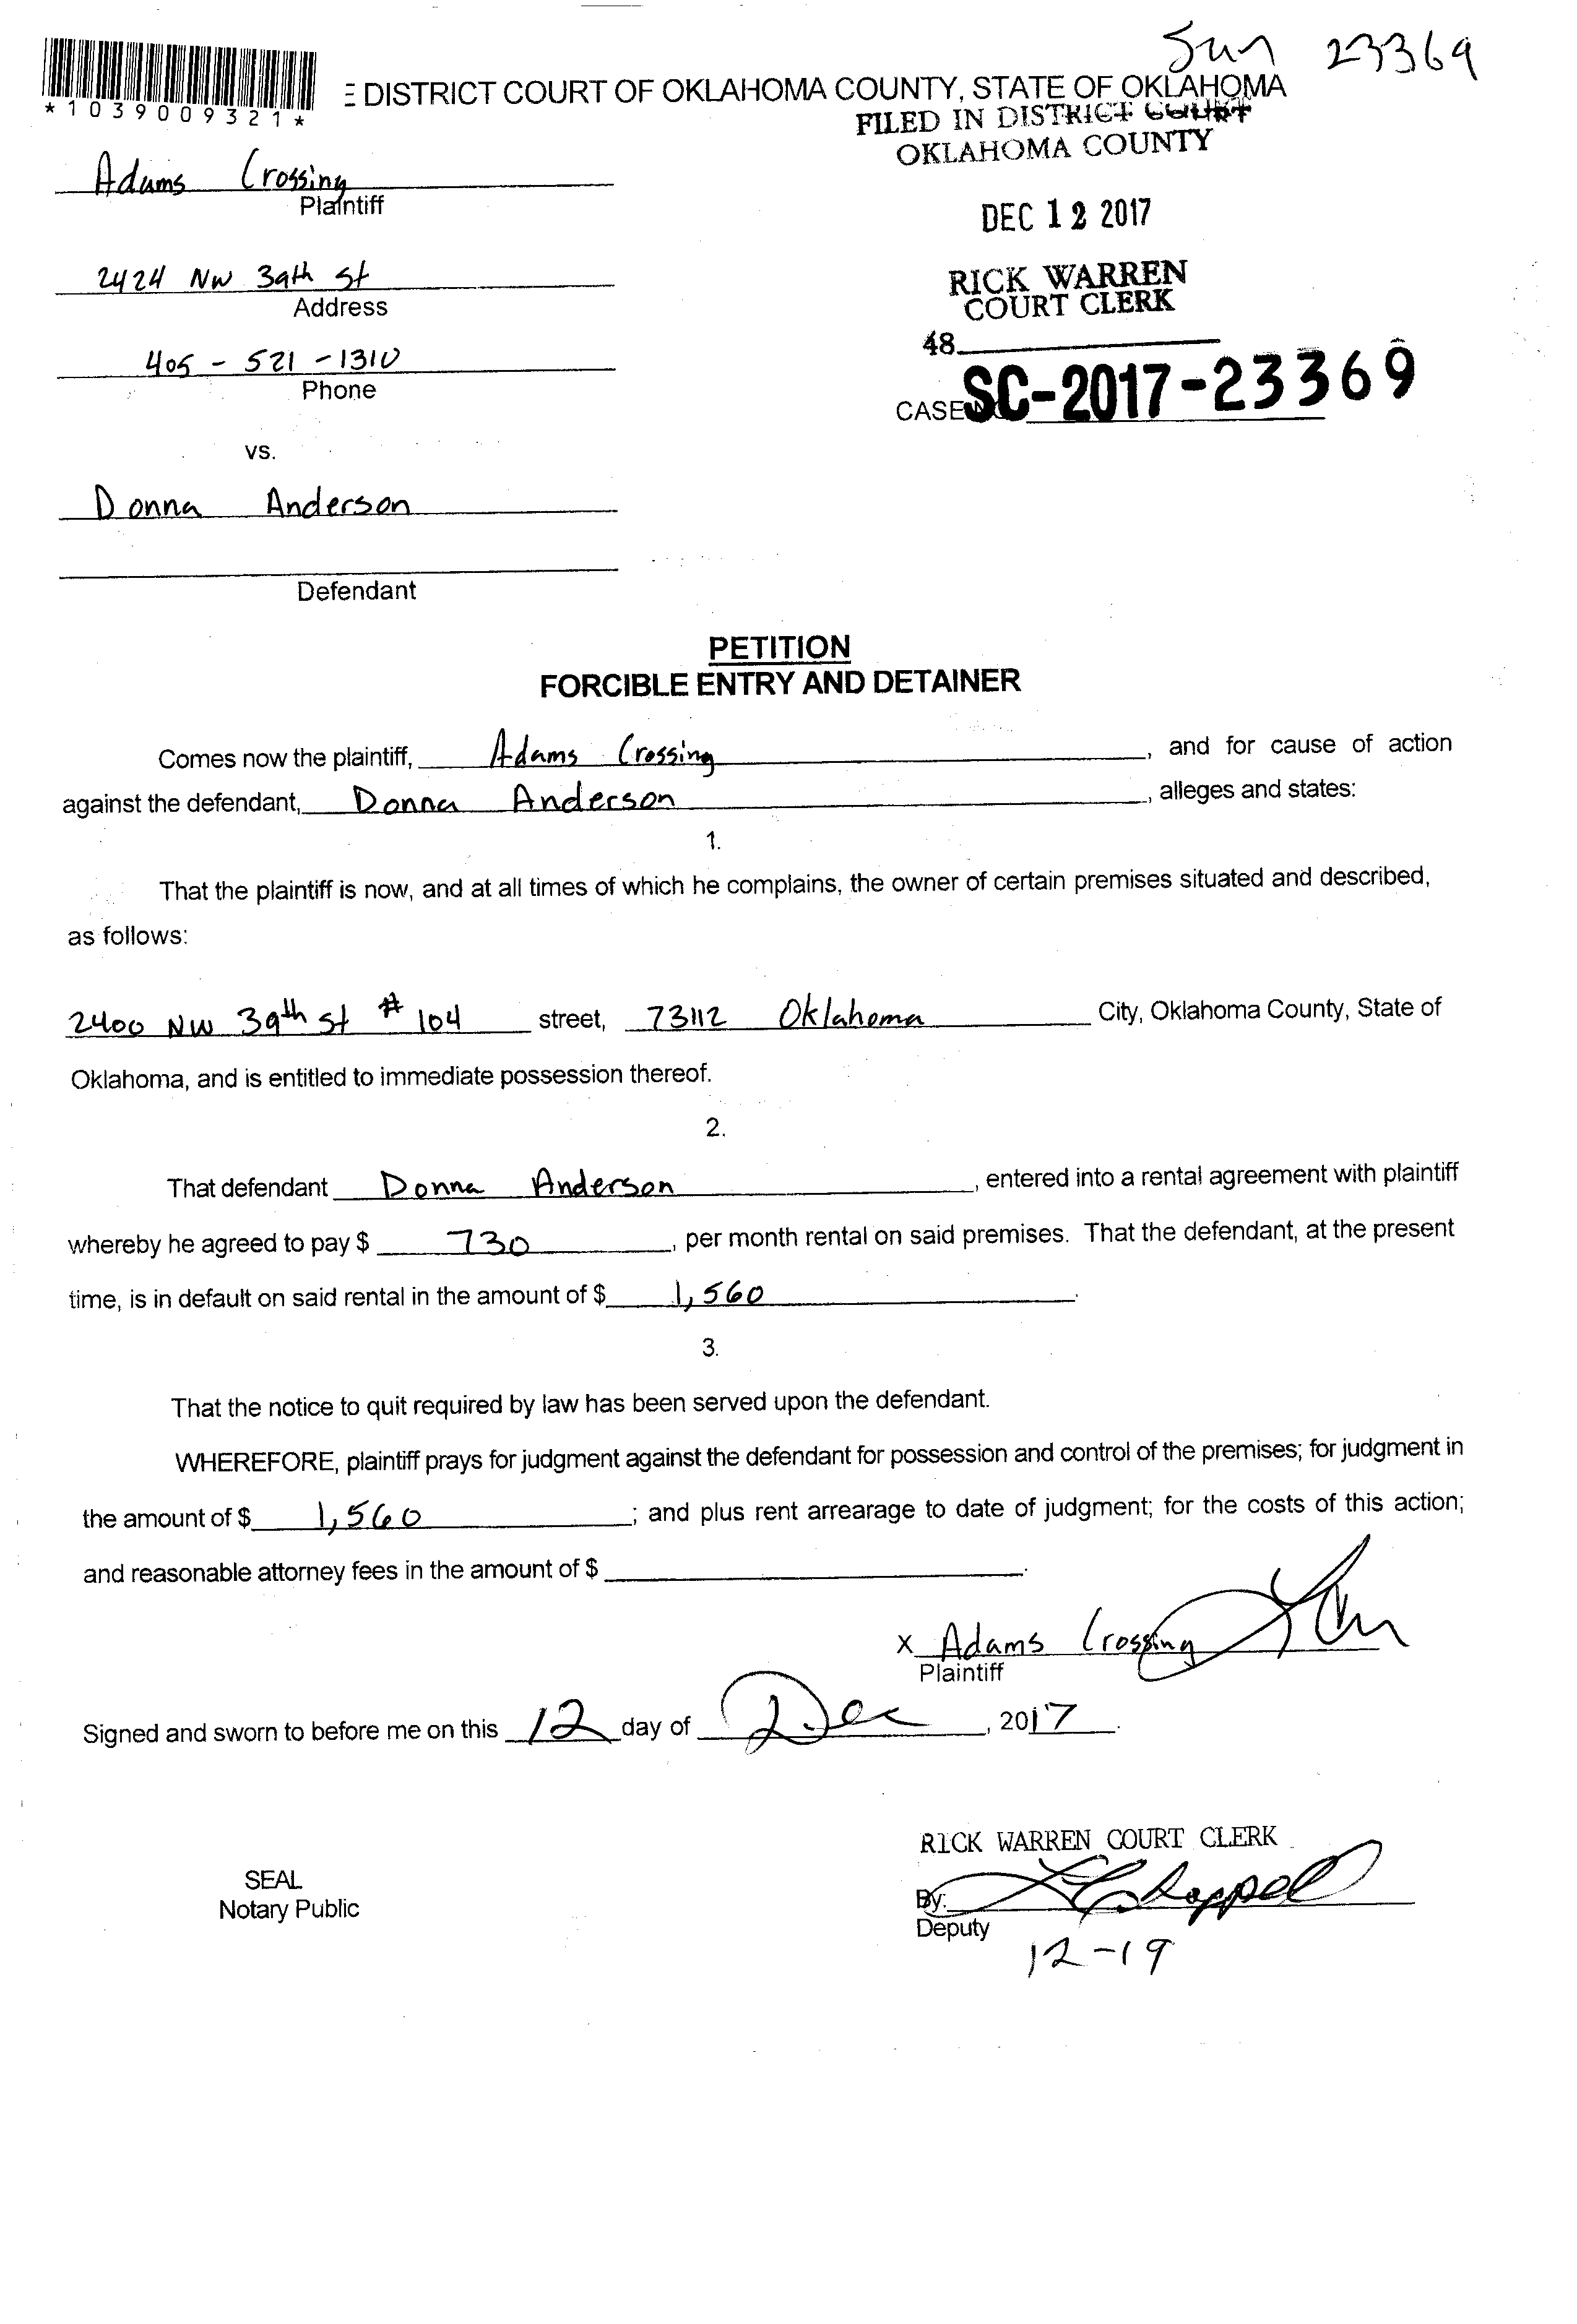 Sun 23369
E DISTRICT COURT OF OKLAHOMA COUNTY, STATE OF OKLAHOMA
*1039009321*
FILED IN DISTRICT COURT
OKLAHOMA COUNTY
Adams Crossing
Plaintiff
DEC 12 2017
2424 NW 39th St
Address
RICK WARREN
COURT CLERK
405-521-1310
Phone
48
CASE NO SC-2017-23369
vs.
Donna Anderson
Defendant
PETITION
FORCIBLE ENTRY AND DETAINER
Comes now the plaintiff, Adams Crossing, and for cause of action
against the defendant, Donna Anderson, alleges and states:
1.
That the plaintiff is now, and at all times of which he complains, the owner of certain premises situated and described,
as follows:
2400 NW 39th St # 104 street, 73112 Oklahoma City, Oklahoma County, State of
Oklahoma, and is entitled to immediate possession thereof.
2.
That defendant Donna Anderson, entered into a rental agreement with plaintiff
whereby he agreed to pay $ 730, per month rental on said premises. That the defendant, at the present
time, is in default on said rental in the amount of $ 1,560.
3.
That the notice to quit required by law has been served upon the defendant.
WHEREFORE, plaintiff prays for judgment against the defendant for possession and control of the premises; for judgment in
the amount of $ 1,560; and plus rent arrearage to date of judgment; for the costs of this action;
and reasonable attorney fees in the amount of $ .
x Adams Crossing
Plaintiff
Signed and sworn to before me on this 12 day of Dec, 2017.
RICK WARREN COURT CLERK
SEAL
Notary Public
By:
Deputy
12-19